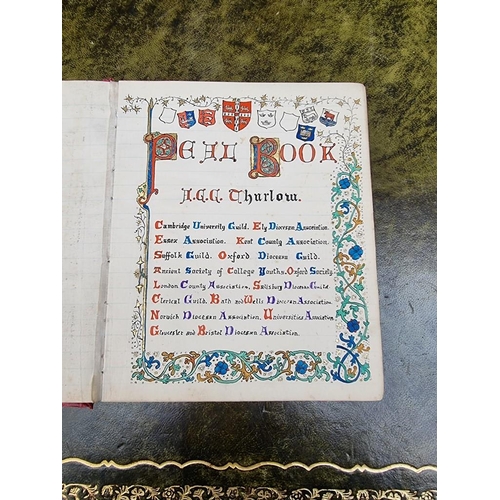 Peal Book
A.G.G. Thurlow.
Cambridge University Guild. Ely Diocesan Association.
Essex Association. Kent County Association.
Suffolk Guild. Oxford Diocesan Guild.
Ancient Society of College Youths. Oxford Society.
London County Association. Salisbury Diocesan Guild.
Clerical Guild. Bath and Wells Diocesan Association.
Norwich Diocesan Association. Universities Association.
Gloucester and Bristol Diocesan Association.